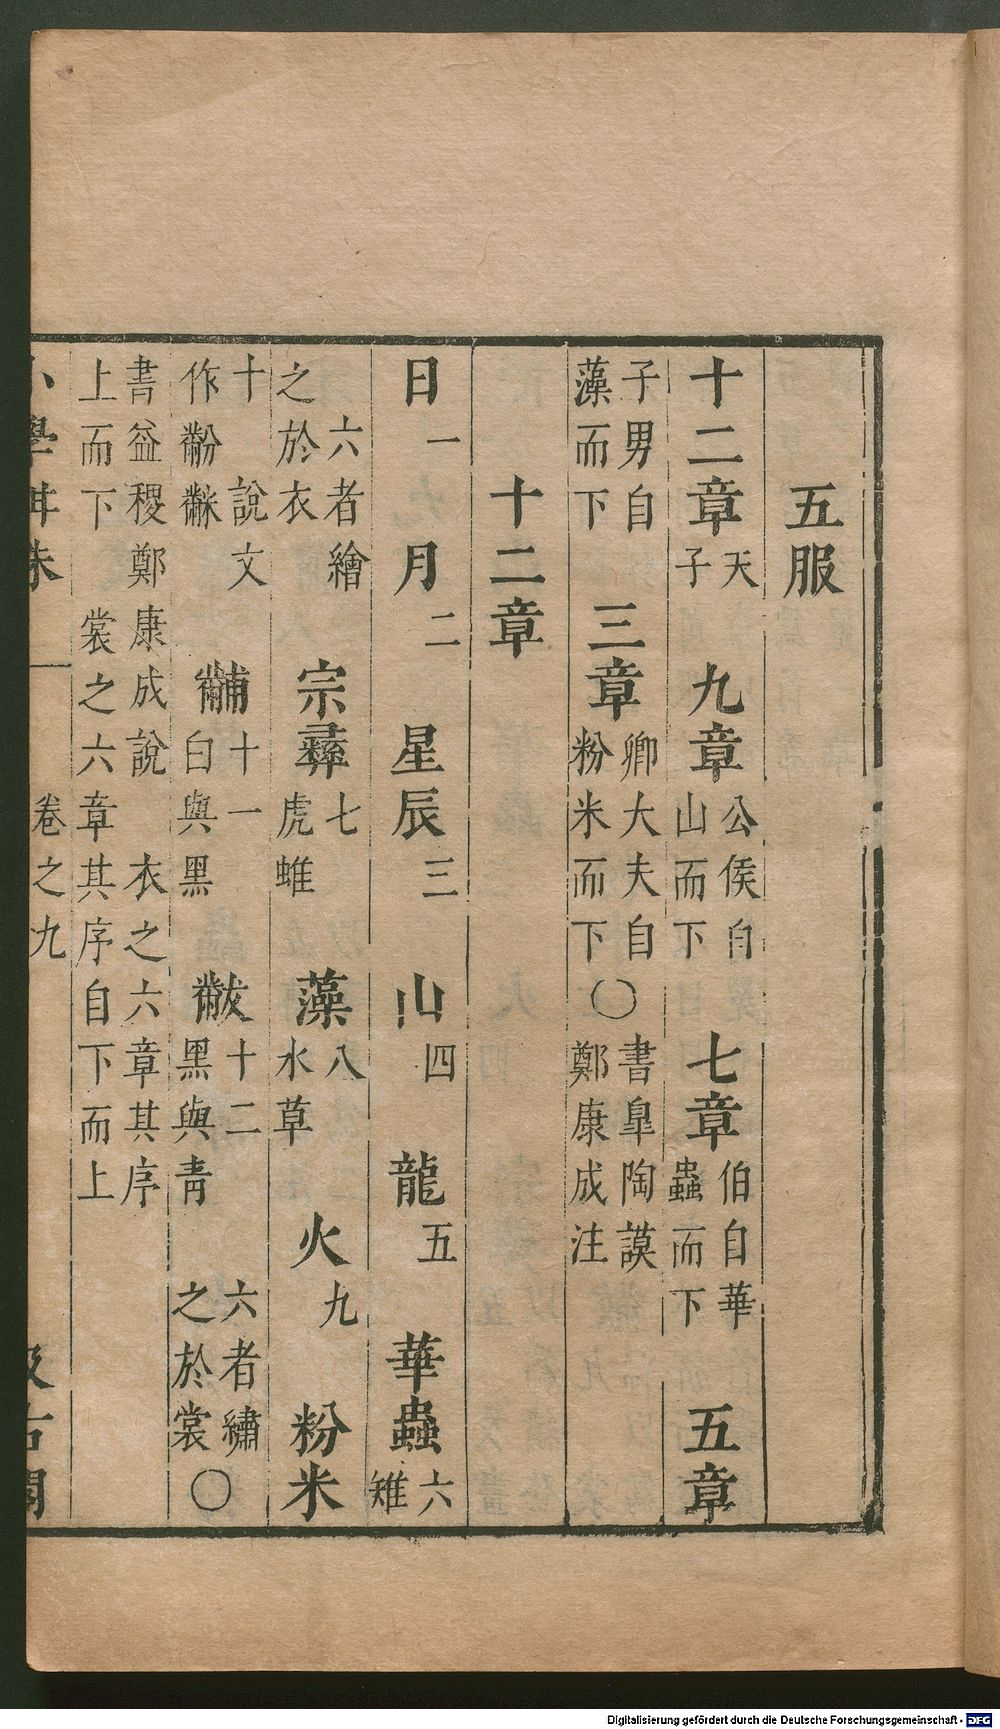 五服
十二章天子 九章公侯自山而下 七章伯自華蟲而下 五章
子男自藻而下 三章卿大夫自粉米而下〇書臯陶謨鄭康成注
十二章
日一 月二 星辰三 山四 龍五 華蟲六雉
六者繪之於衣 宗彝七虎蜼 藻八水草 火九 粉米
十 說文作黺𪓋 黼十一白與黑 黻十二黑與青 六者繡之於裳〇
書益稷鄭康成說 衣之六章其序上而下 裳之六章其序自下而上
小學紺珠 卷之九 汲古閣
Digitalisierung gefördert durch die Deutsche Forschungsgemeinschaft - DFG